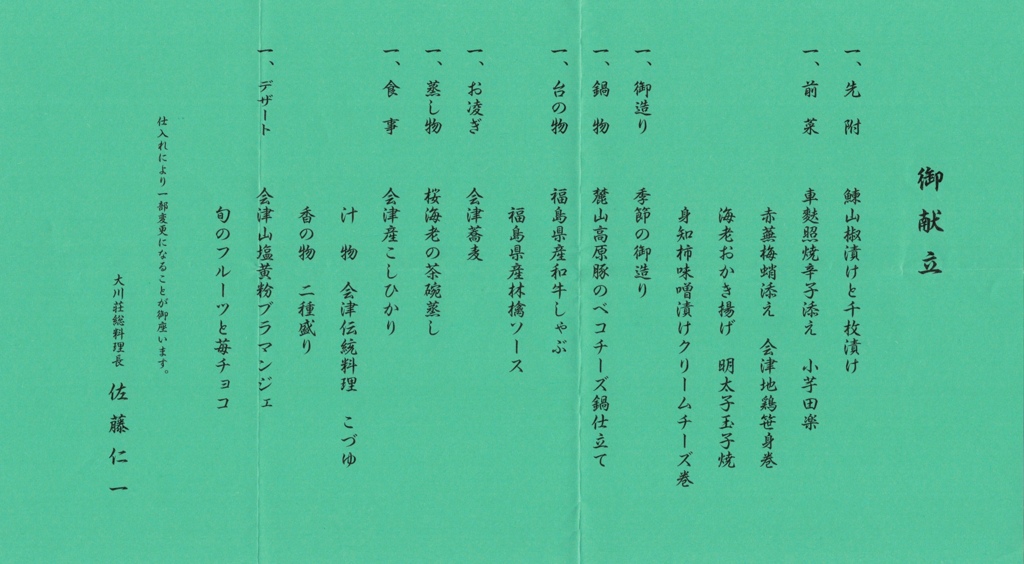 御献立
一、先附 鰊山椒漬けと千枚漬け
一、前菜 車麩照焼辛子添え 小芋田楽
赤蕪梅蛸添え 会津地鶏笹身巻
海老おかき揚げ 明太子玉子焼
身知柿味噌漬けクリームチーズ巻
一、御造り 季節の御造り
一、鍋物 麓山高原豚のべコチーズ鍋仕立て
一、台の物 福島県産和牛しゃぶ
福島県産林檎ソース
一、お凌ぎ 会津蕎麦
一、蒸し物 桜海老の茶碗蒸し
一、食事 会津産こしひかり
汁物 会津伝統料理 こづゆ
香の物 二種盛り
一、デザート 会津山塩黄粉ブラマンジェ
旬のフルーツと苺チョコ
仕入れにより一部変更になることが御座います。
大川荘総料理長 佐藤仁一